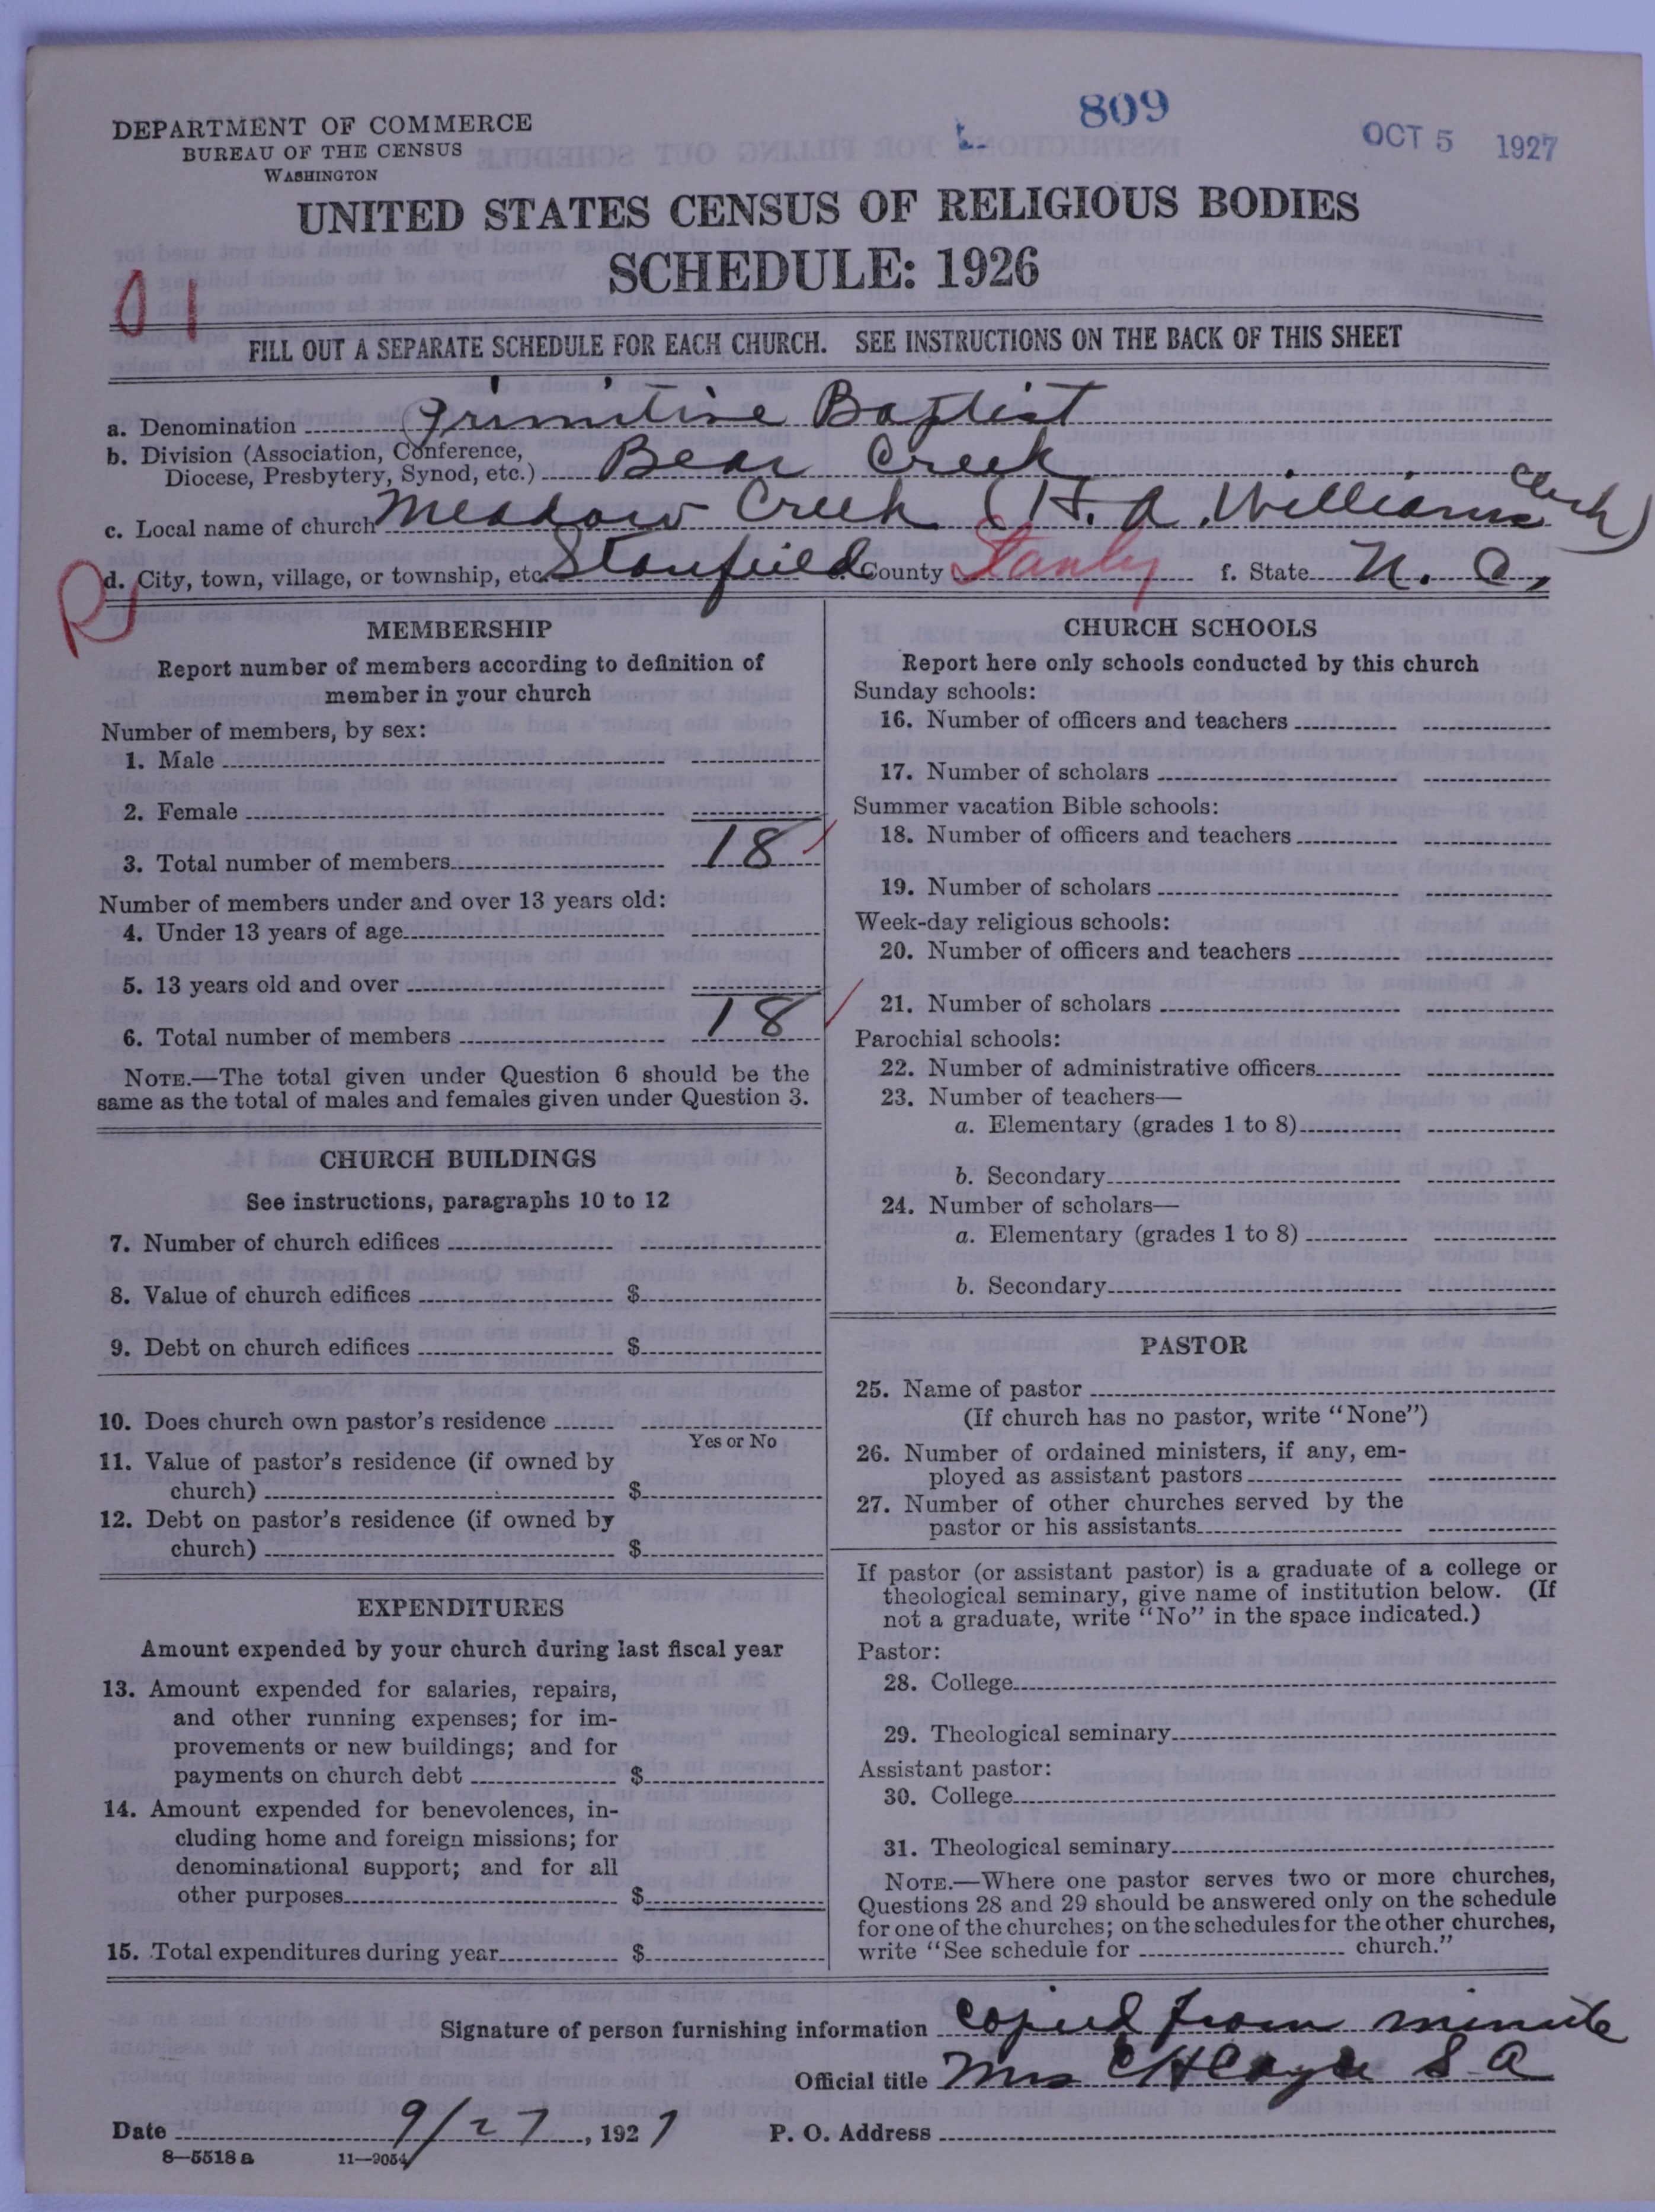 809
OCT 5 1927
DEPARTMENT OF COMMERCE
BUREAU OF THE CENSUS
WASHINGTON
UNITED STATES CENSUS OF RELIGIOUS BODIES
SCHEDULE: 1926
01
FILL OUT A SEPARATE SCHEDULE FOR EACH CHURCH. SEE INSTRUCTIONS ON THE BACK OF THIS SHEET
a. Denomination Primitive Baptist
b. Division (Association, Conference,
Diocese, Presbytery, Synod, etc.) Bear Creek
c. Local name of church Meadow Creek (H. A. Williams Clerk)
R
d. City, town, village, or township, etc. Stanfield e. County Stanly f. State N. C.
MEMBERSHIP
Report number of members according to definition of
member in your church
Number of members, by sex:
1. Male
2. Female
3. Total number of members 18
Number of members under and over 13 years old:
4. Under 13 years of age
5. 13 years old and over
6. Total number of members 18
NOTE.—The total given under Question 6 should be the
same as the total of males and females given under Question 3.
CHURCH BUILDINGS
See instructions, paragraphs 10 to 12
7. Number of church edifices
8. Value of church edifices $
9. Debt on church edifices $
10. Does church own pastor's residence
Yes or No
11. Value of pastor's residence (if owned by
church) $
12. Debt on pastor's residence (if owned by
church) $
EXPENDITURES
Amount expended by your church during last fiscal year
13. Amount expended for salaries, repairs,
and other running expenses; for im-
provements or new buildings; and for
payments on church debt $
14. Amount expended for benevolences, in-
cluding home and foreign missions; for
denominational support; and for all
other purposes $
15. Total expenditures during year $
CHURCH SCHOOLS
Report here only schools conducted by this church
Sunday schools:
16. Number of officers and teachers
17. Number of scholars
Summer vacation Bible schools:
18. Number of officers and teachers
19. Number of scholars
Week-day religious schools:
20. Number of officers and teachers
21. Number of scholars
Parochial schools:
22. Number of administrative officers
23. Number of teachers—
a. Elementary (grades 1 to 8)
b. Secondary
24. Number of scholars—
a. Elementary (grades 1 to 8)
b. Secondary
PASTOR
25. Name of pastor
(If church has no pastor, write "None")
26. Number of ordained ministers, if any, em-
ployed as assistant pastors
27. Number of other churches served by the
pastor or his assistants
If pastor (or assistant pastor) is a graduate of a college or
theological seminary, give name of institution below. (If
not a graduate, write "No" in the space indicated.)
Pastor:
28. College
29. Theological seminary
Assistant pastor:
30. College
31. Theological seminary
NOTE.—Where one pastor serves two or more churches,
Questions 28 and 29 should be answered only on the schedule
for one of the churches; on the schedules for the other churches,
write "See schedule for church."
Signature of person furnishing information copied from minute
Official title Mrs C H Cayce S. A
Date 9/27, 1927 P. O. Address
8—5518 a 11—9054